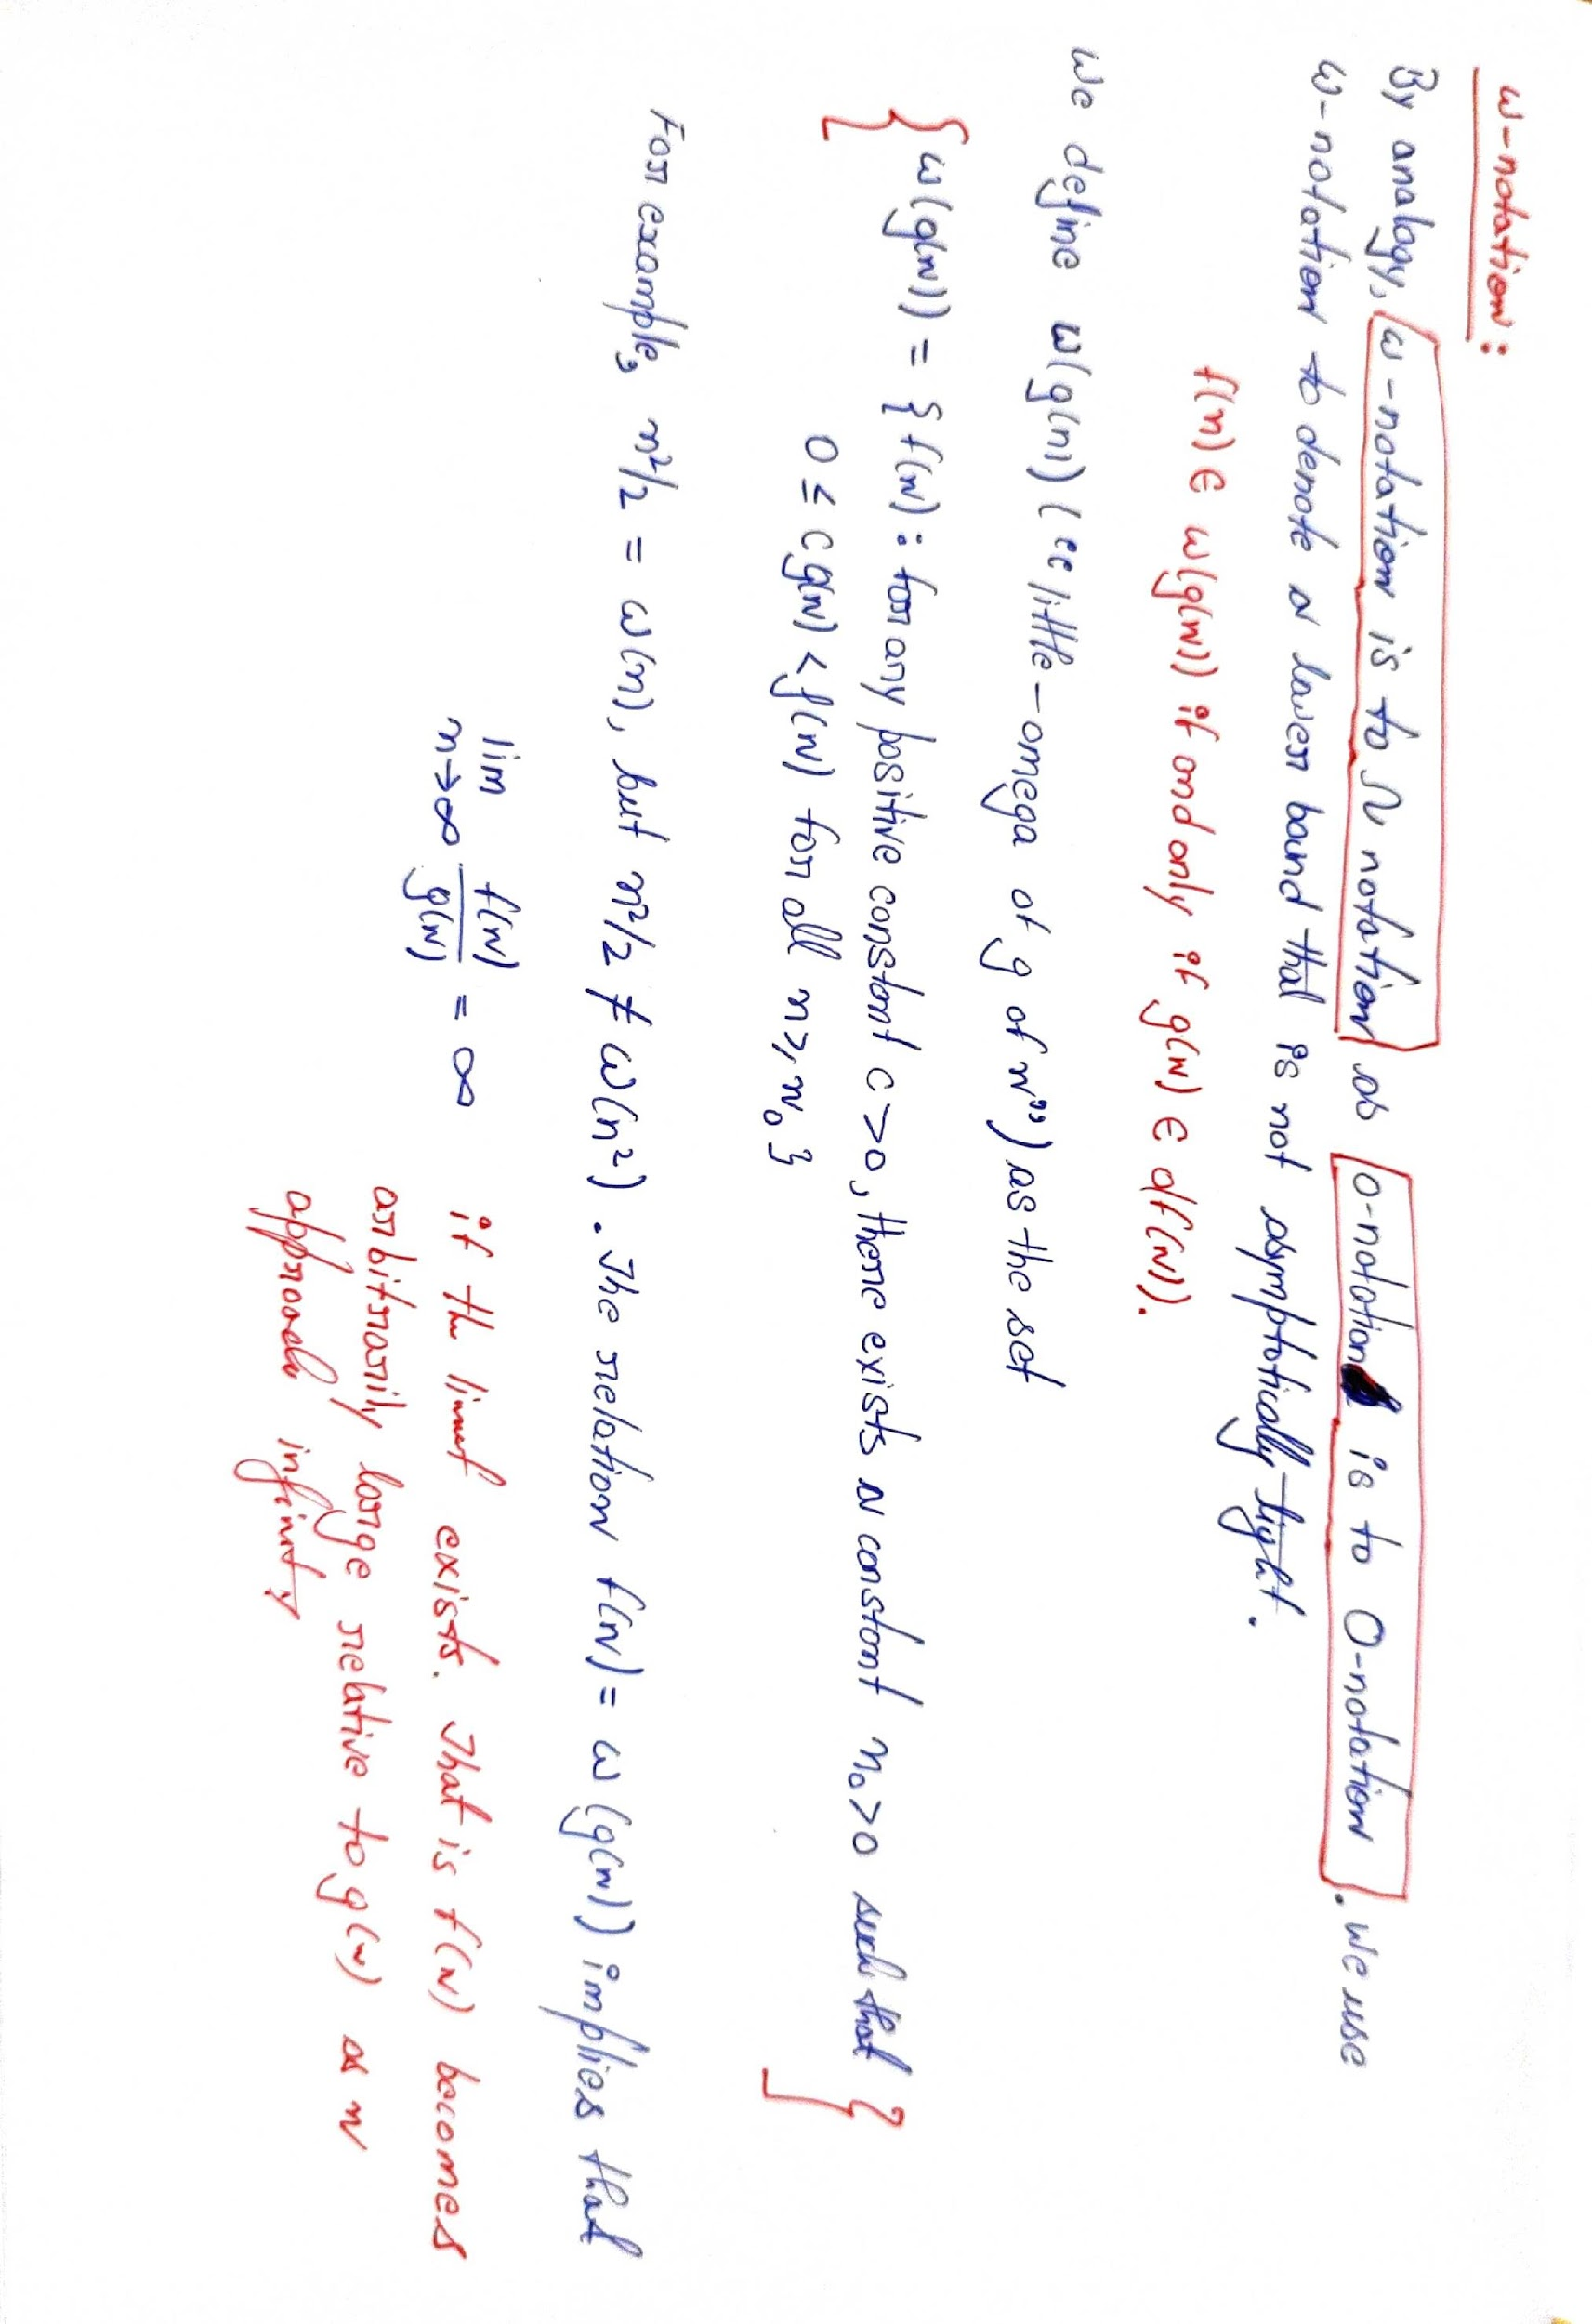 ω-notation:
By analogy, ω-notation is to Ω notation as o-notation is to O-notation. we use
ω-notation to denote a lower bound that is not asymptotically tight.
f(n) ∈ ω(g(n)) if and only if g(n) ∈ o(f(n)).
we define ω(g(n)) ("little-omega of g of n") as the set
{ω(g(n)) = {f(n): for any positive constant c>0, there exists a constant n₀>0 such that
0 ≤ cg(n) < f(n) for all n ≥ n₀}}
For example, n²/2 = ω(n), but n²/2 ≠ ω(n²). The relation f(n) = ω(g(n)) implies that
lim n→∞ f(n)/g(n) = ∞ if the limit exists. That is f(n) becomes
arbitrarily large relative to g(n) as n
approach infinity